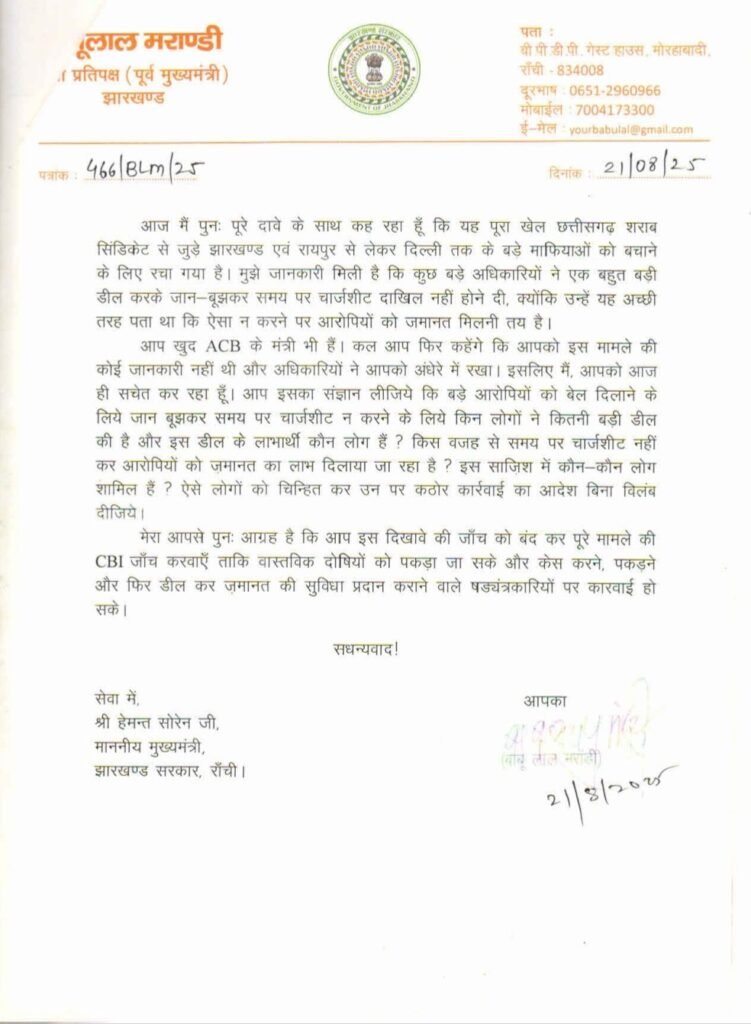 ूलाल मराण्डी
ा प्रतिपक्ष (पूर्व मुख्यमंत्री)
झारखण्ड
GOVERNMENT OF JHARKHAND
पता :
वी पी डी.पी. गेस्ट हाउस, मोरहाबादी,
राँची - 834008
दूरभाष : 0651-2960966
मोबाईल : 7004173300
ई-मेल : yourbabulal@gmail.com
पत्रांक : 466/BLM/25
दिनांक : 21/08/25
आज मैं पुनः पूरे दावे के साथ कह रहा हूँ कि यह पूरा खेल छत्तीसगढ़ शराब
सिंडिकेट से जुड़े झारखण्ड एवं रायपुर से लेकर दिल्ली तक के बड़े माफियाओं को बचाने
के लिए रचा गया है। मुझे जानकारी मिली है कि कुछ बड़े अधिकारियों ने एक बहुत बड़ी
डील करके जान-बूझकर समय पर चार्जशीट दाखिल नहीं होने दी, क्योंकि उन्हें यह अच्छी
तरह पता था कि ऐसा न करने पर आरोपियों को जमानत मिलनी तय है।
आप खुद ACB के मंत्री भी हैं। कल आप फिर कहेंगे कि आपको इस मामले की
कोई जानकारी नहीं थी और अधिकारियों ने आपको अंधेरे में रखा। इसलिए मैं, आपको आज
ही सचेत कर रहा हूँ। आप इसका संज्ञान लीजिये कि बड़े आरोपियों को बेल दिलाने के
लिये जान बूझकर समय पर चार्जशीट न करने के लिये किन लोगों ने कितनी बड़ी डील
की है और इस डील के लाभार्थी कौन लोग हैं ? किस वजह से समय पर चार्जशीट नहीं
कर आरोपियों को ज़मानत का लाभ दिलाया जा रहा है ? इस साज़िश में कौन-कौन लोग
शामिल हैं ? ऐसे लोगों को चिन्हित कर उन पर कठोर कार्रवाई का आदेश बिना विलंब
दीजिये।
मेरा आपसे पुनः आग्रह है कि आप इस दिखावे की जाँच को बंद कर पूरे मामले की
CBI जाँच करवाएँ ताकि वास्तविक दोषियों को पकड़ा जा सके और केस करने, पकड़ने
और फिर डील कर ज़मानत की सुविधा प्रदान कराने वाले षड्यंत्रकारियों पर कारवाई हो
सके।
सधन्यवाद!
सेवा में,
श्री हेमन्त सोरेन जी,
माननीय मुख्यमंत्री,
झारखण्ड सरकार, राँची।
आपका
(बाबू लाल मरांडी)
21/8/2025